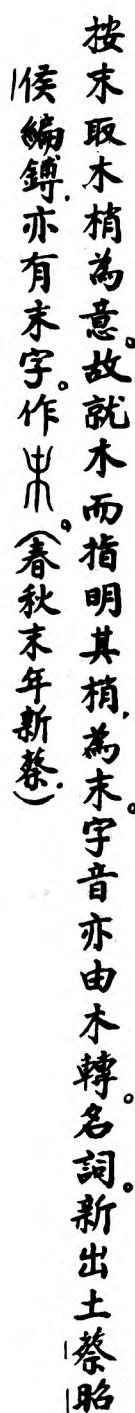 按末取木梢為意。故就木而指明其梢，為末。字音亦由木轉。名詞。新出土蔡昭
侯編鎛，亦有末字。作。（春秋末年新蔡。）